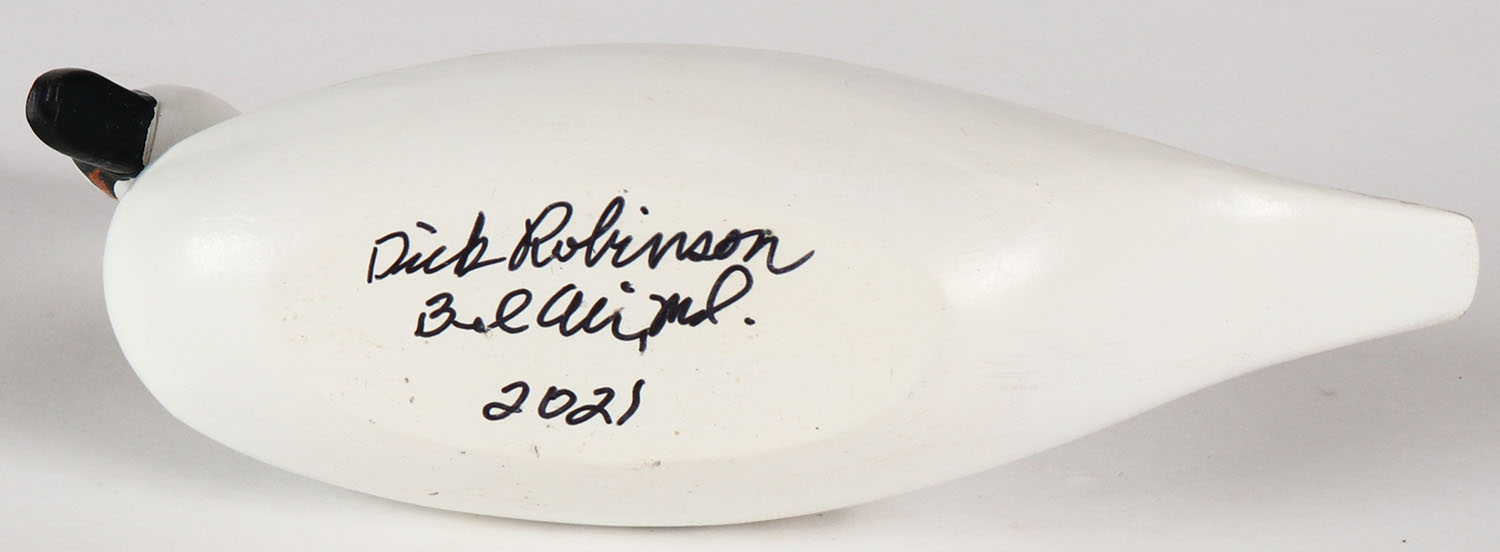 Dick Robinson
Bel Air, Md.
2021